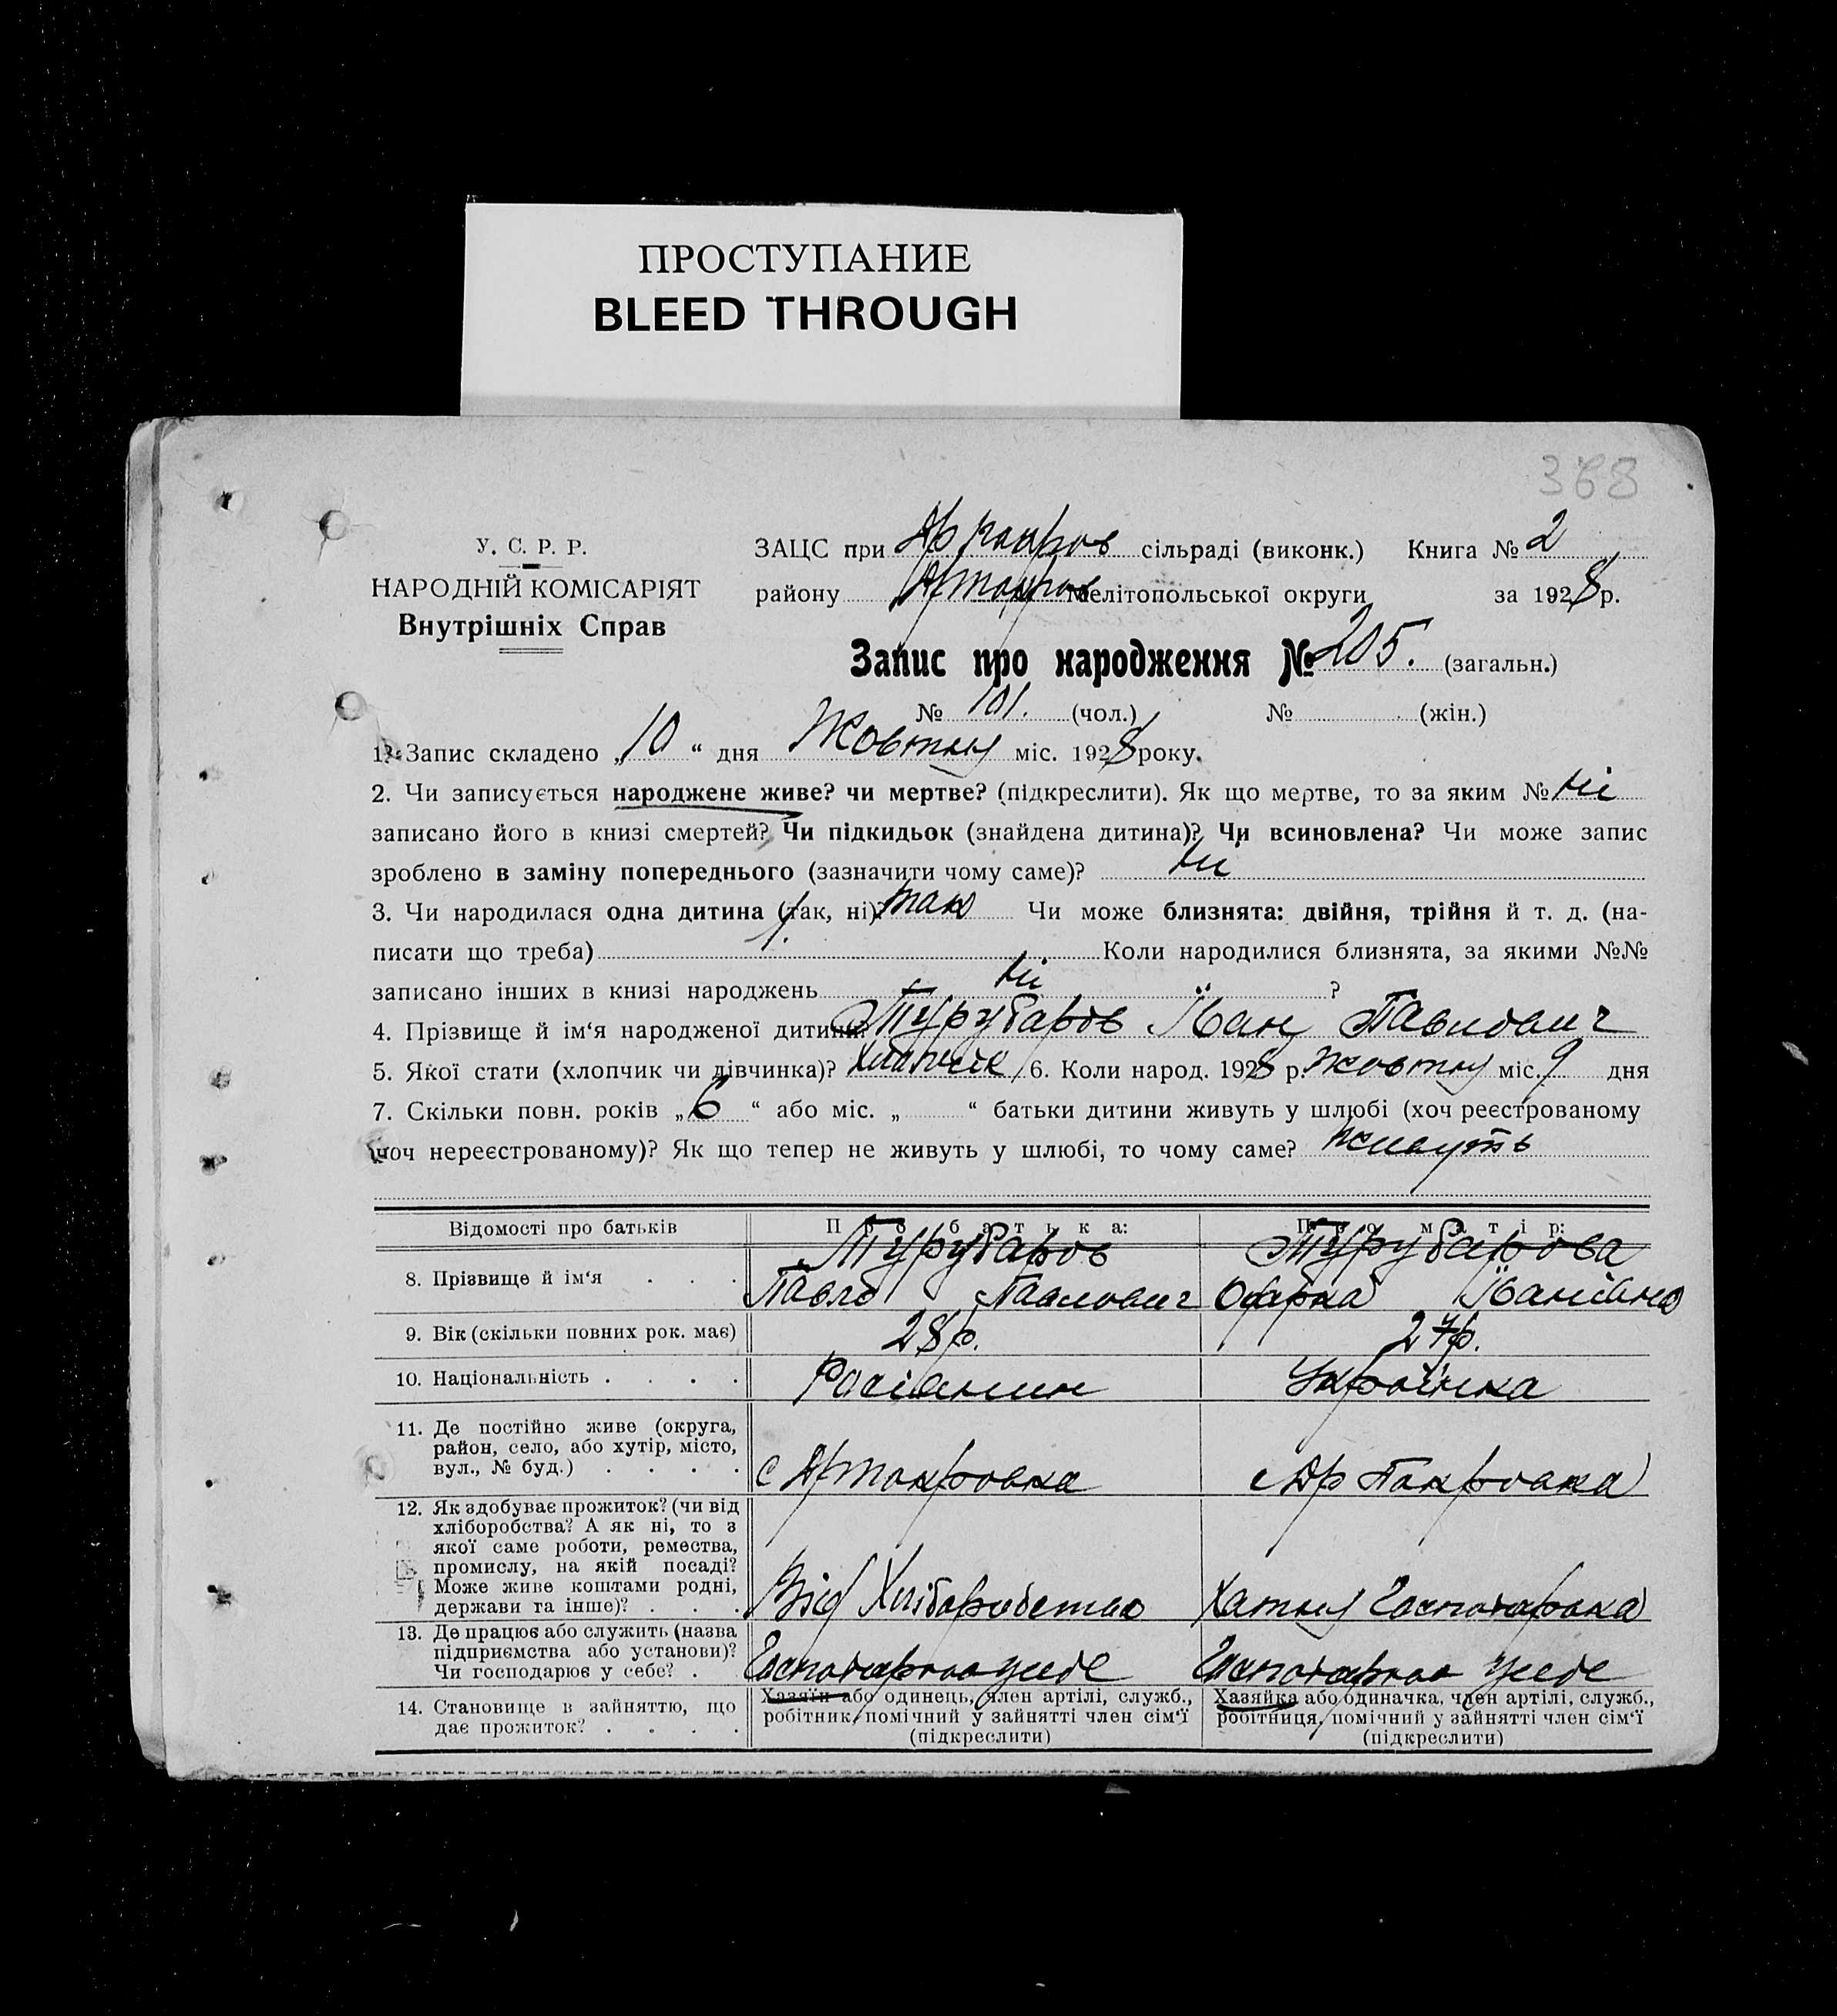 ПРОСТУПАНИЕ
BLEED THROUGH
368
У. С. Р. Р.
НАРОДНІЙ КОМІСАРІЯТ
Внутрішніх Справ
ЗАЦС при сільраді (виконк.) Книга № 2
району Мелітопольської округи за 1928 р.
Запис про народження № 205. (загальн.)
№ 101. (чол.) № (жін.)
1. Запис складено „10“ дня Жовтня міс. 1928 року.
2. Чи записується народжене живе? чи мертве? (підкреслити). Як що мертве, то за яким № ні
записано його в книзі смертей? Чи підкидьок (знайдена дитина)? Чи всиновлена? Чи може запис
зроблено в заміну попереднього (зазначити чому саме)? ні
3. Чи народилася одна дитина (так, ні)? так Чи може близнята: двійня, трійня й т. д. (на-
писати що треба) Коли народилися близнята, за якими №№
записано інших в книзі народжень ні ?
4. Прізвище й ім‘я народженої дитини? Турубаров Іван Павлович
5. Якої стати (хлопчик чи дівчинка)? Хлапчик 6. Коли народ. 1928 р. жовтня міс. 9 дня
7. Скільки повн. років „6“ або міс. „ “ батьки дитини живуть у шлюбі (хоч реєстрованому
хоч нереєстрованому)? Як що тепер не живуть у шлюбі, то чому саме? живуть
Відомості про батьків Про батька: Про матір:
8. Прізвище й ім‘я . . . Турубаров Павло Павлович Турубарова Іванівна
9. Вік (скільки повних рок. має) 28 р. 27 р.
10. Національність . . . . Росіанин Українка
11. Де постійно живе (округа,
район, село, або хутір, місто,
вул., № буд.) . . . . с Ярпокровка с Яр Покровка
12. Як здобуває прожиток? (чи від
хліборобства? А як ні, то з
якої саме роботи, ремества,
промислу, на якій посаді?
Може живе коштами родні,
держави та інше)? . . . Від Хліборобства Хатня Господарка
13. Де працює або служить (назва
підприємства або установи)?
Чи господарює у себе? . Господарює у себе Господарює у себе
14. Становище в зайняттю, що
дає прожиток? . . . .
Хазяїн або одинець, член артілі, служб.,
робітник, помічний у зайнятті член сім‘ї
(підкреслити)
Хазяйка або одиначка, член артілі, служб.,
робітниця, помічний у зайнятті член сім‘ї
(підкреслити)